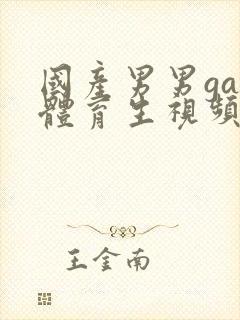 國産男男ga
體育生視頻
王金南